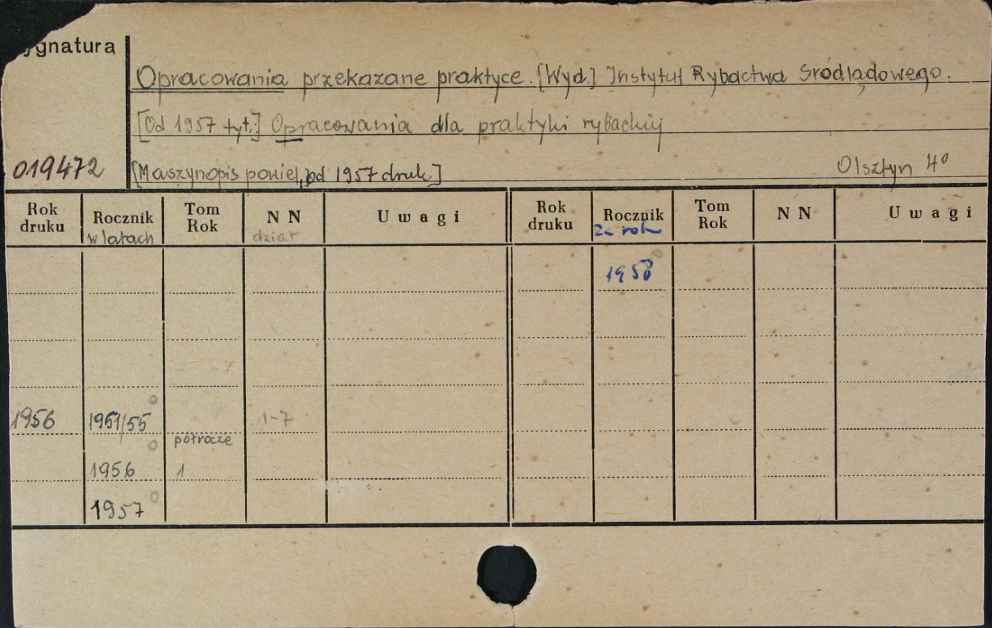 ygnatura
Opracowania przekazane praktyce. [Wyd] Instytut Rybactwa Śródlądowego.
[Od 1957 tyt.] Opracowania dla praktyki rybackiej
019472 [Maszynopis powiel, od 1957 druk.] Olsztyn 4°
Rok druku Rocznik w latach Tom Rok NN dział Uwagi Rok druku Rocznik Za rok Tom Rok NN Uwagi
1958
1956 1951/55 1-7
półrocze
1956 1
1957